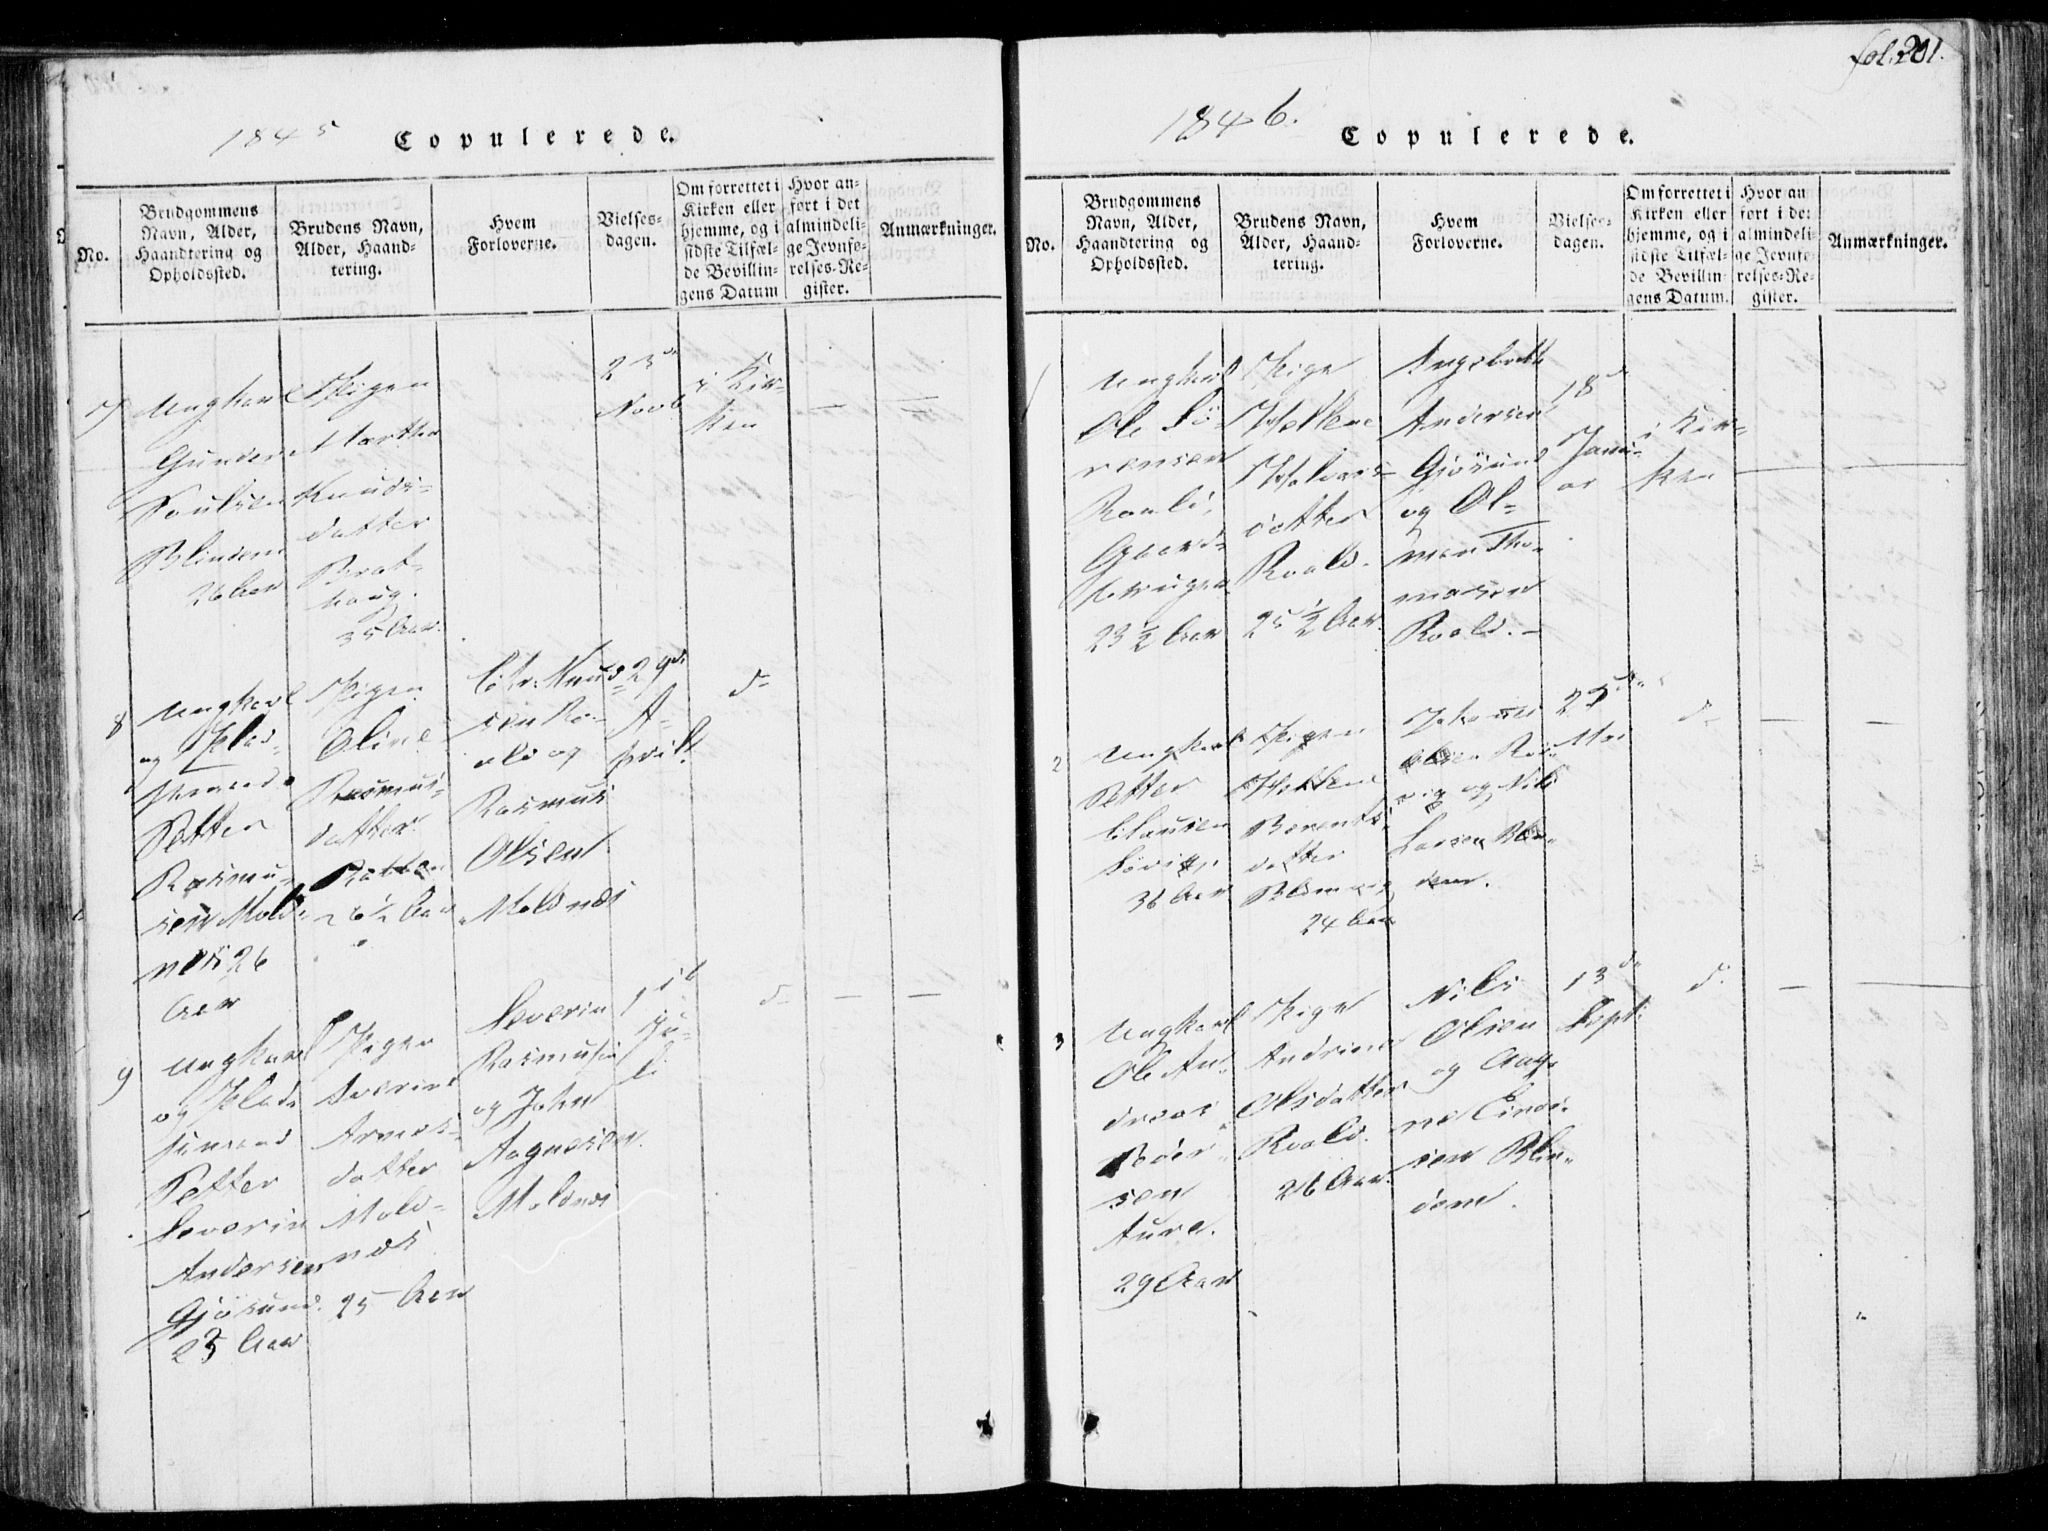 1845 Copulerede.
No.
Brudgommens
Navn, Alder,
Haandtering og
Opholdssted.
Brudens Navn,
Alder, Haand-
tering.
Hvem
Forloverne.
Vielses-
dagen.
Om forrettet i
Kirken eller
hjemme, og i
sidste Tilfæl-
de Bevillin-
gens Datum
Hvor an-
ført i det
almindeli-
ge Jevnfø-
relses-Re-
gister.
Anmærkninger.
7
Ungkarl
Gunder
Poulsen
Blindem
26 Aar
Pigen
Marthe
Knuds-
datter
Brat-
haug.
35 Aar.
23de
Novb
i Kir-
ken
8
Ungkarl
og Plad-
Petter
Rasmu-
sen Mold-
nes 26
Aar
Pigen
Oline
Rasmus-
datter
26½ Aar
Chr. Knud-
sen Ro-
ald og
Rasmus
Olsen
Moldnæs
29de
A-
pril
do
9
Ungkarl
og Plads-
Petter
Severin
Andersen
Gjøsund.
23 Aar
Pigen
Severine
datter
Mold-
næs
25 Aar
Severin
Rasmusen
og John
Aagnesen
Moldnæs
1st
Ju-
li
do
fol. 201.
1846. Copulerede.
No.
Brudgommens
Navn, Alder,
Haandtering og
Opholdssted.
Brudens Navn,
Alder, Haand-
tering.
Hvem
Forloverne.
Vielses-
dagen.
Om forrettet i
Kirken eller
hjemme, og i
sidste Tilfæl-
de Bevillin-
gens Datum.
Hvor an
ført i det
almindeli-
ge Jevnfø-
relses-Re-
gister.
Anmærkninger.
1
Ungkarl
Ole Sø-
rensen
Roald,
Gaard-
23½ Aar
Pige
Hellene
Halvars-
datter
Roald.
25½ Aar.
Ingebrikt
Andersen
Gjøsund
og Ol-
man Tho-
masen
Roald.
18de
Janu-
ar
i Kir-
ken
2
Ungkarl
Petter
Clausen
36 Aar
Pigen
Hellene
Berents-
datter
24 Aar
Johannes
Olsen Rø-
vig og Nils
Larsen Blin-
dem.
23de
Mai
do
3
Ungkarl
Ole An-
dreas
Peder-
sen
Aure.
29 Aar
Pige
Andrine
Olsdatter
Roald.
26 Aar.
Nils
Olsen
og Aag-
sen Blin-
dem.
13de
Sept.
do